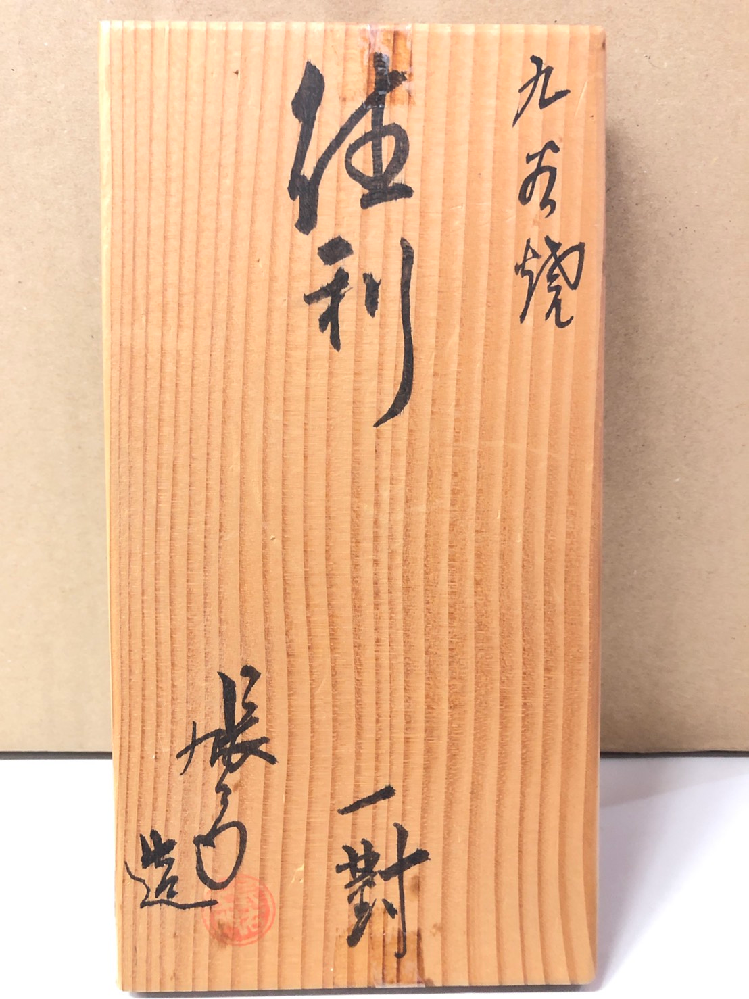 九谷焼
徳利
一對
造